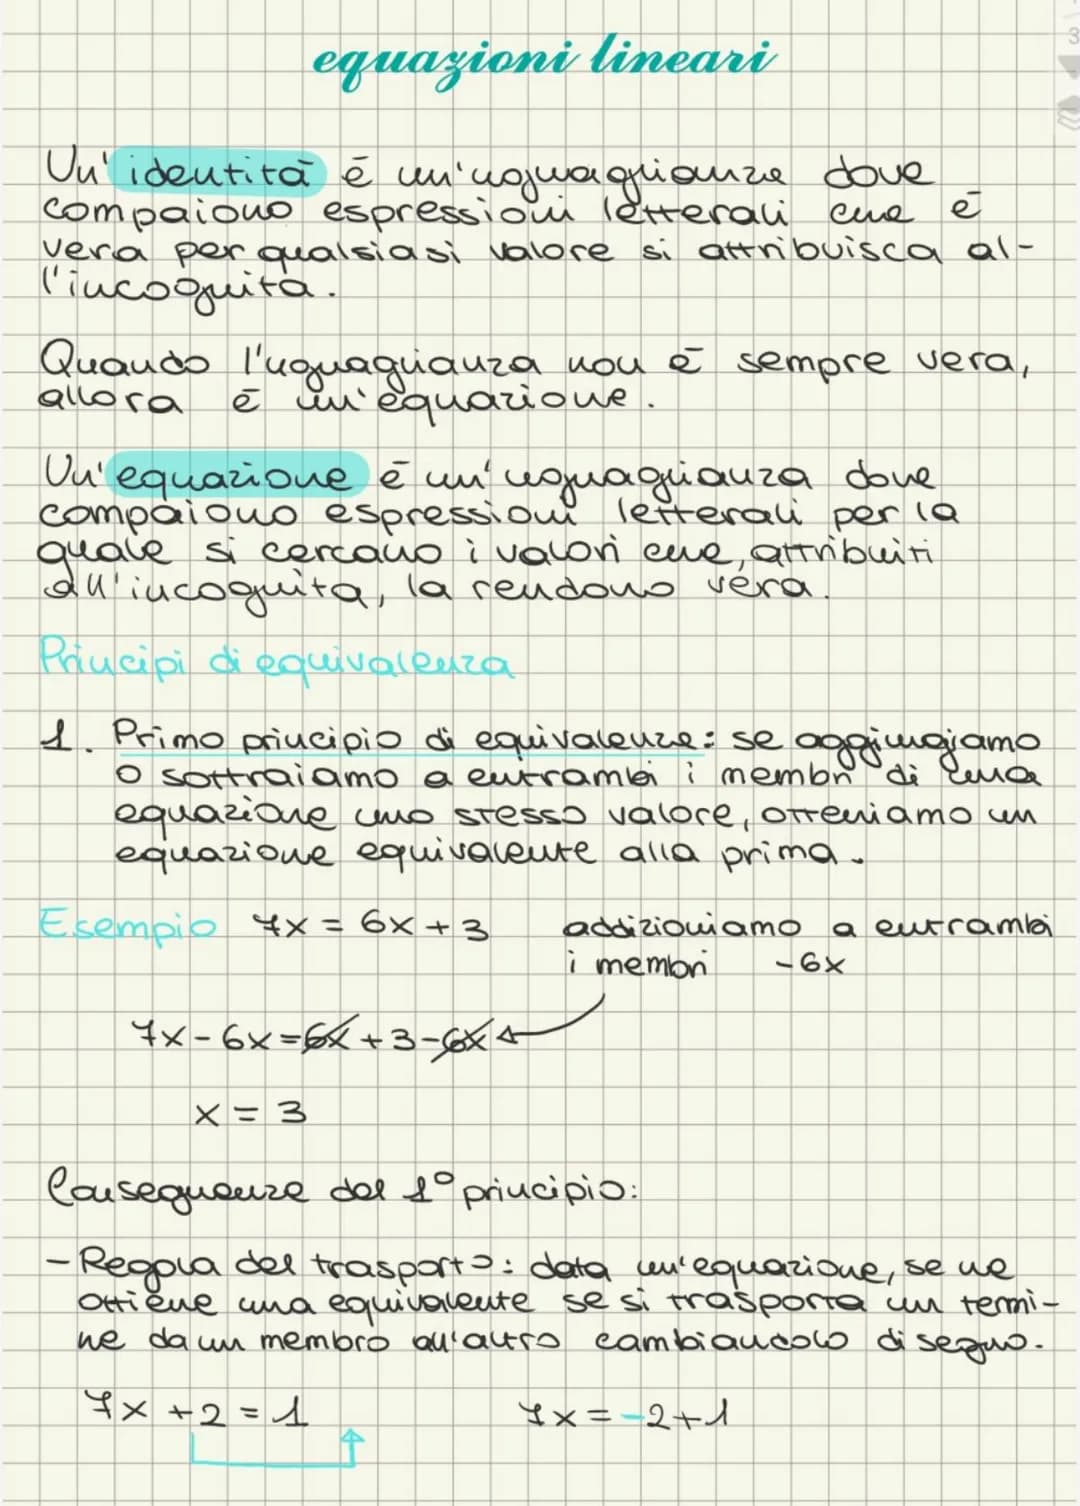 equazioni lineari
Un'identità è un'uguaglianza dove
compaiono espressioni letterali che è
vera per qualsiasi valore si attribuisca al-
l'incognita.
Quando l'uguaglianza non è sempre vera,
allora è un'equazione.
Un'equazione è un'uguaglianza dove
compaiono espressioni letterali per la
quale si cercano i valori che, attribuiti
all'incognita, la rendono vera.
Principi di equivalenza
1. Primo principio di equivalenza: se aggiungiamo
o sottraiamo a entrambi i membri di una
equazione uno stesso valore, otteniamo un
equazione equivalente alla prima.
Esempio 7x = 6x + 3 addizioniamo a entrambi
i membri -6x
7x - 6x = 6x + 3 - 6x
x = 3
Conseguenze del 1° principio:
- Regola del trasporto: data un'equazione, se ne
ottiene una equivalente se si trasporta un termi-
ne da un membro all'altro cambiandolo di segno.
7x + 2 = 1 7x = -2 + 1
3